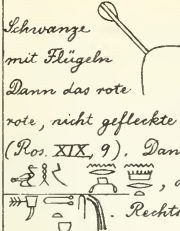 Schwanze
mit Flügeln
Dann das rote
rote, nicht gefleckte
(Ros. XIX, 9). Dan
. Rechts